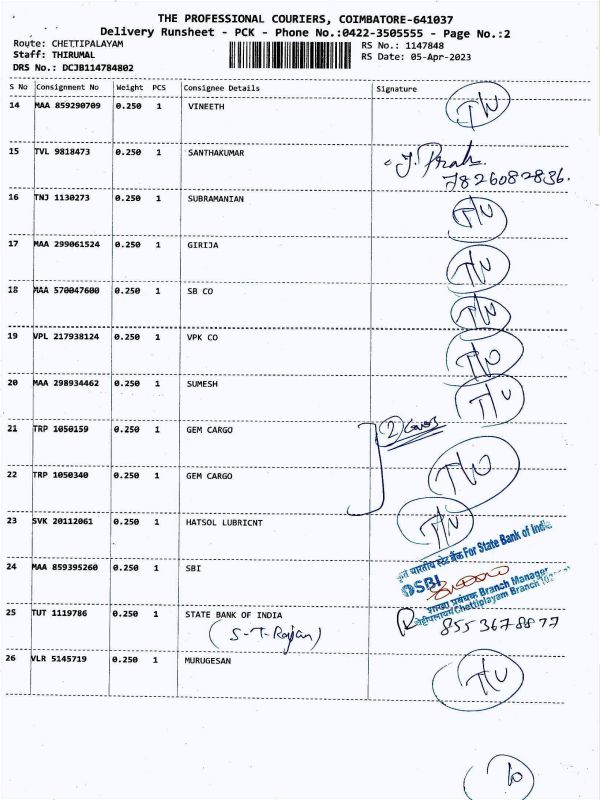 THE PROFESSIONAL COURIERS, COIMBATORE-641037
Delivery Runsheet - PCK - Phone No.:0422-3505555 - Page No.:2
Route: CHETTIPALAYAM RS No.: 1147848
Staff: THIRUMAL RS Date: 05-Apr-2023
DRS No.: DCJB114784802
S No Consignment No Weight PCS Consignee Details Signature
14 MAA 859290709 0.250 1 VINEETH
15 TVL 9818473 0.250 1 SANTHAKUMAR
7826082836.
16 TNJ 1130273 0.250 1 SUBRAMANIAN
17 MAA 299061524 0.250 1 GIRIJA
18 MAA 570047600 0.250 1 SB CO
19 VPL 217938124 0.250 1 VPK CO
20 MAA 298934462 0.250 1 SUMESH
21 TRP 1050159 0.250 1 GEM CARGO
22 TRP 1050340 0.250 1 GEM CARGO
23 SVK 20112061 0.250 1 HATSOL LUBRICNT
कृते भारतीय स्टेट बैंक For State Bank of India
24 MAA 859395260 0.250 1 SBI
SBI
शाखा प्रबंधक Branch Manager
Chettiplayam Branch
25 TUT 1119786 0.250 1 STATE BANK OF INDIA
(S-T-Rajan) 8553678877
26 VLR 5145719 0.250 1 MURUGESAN